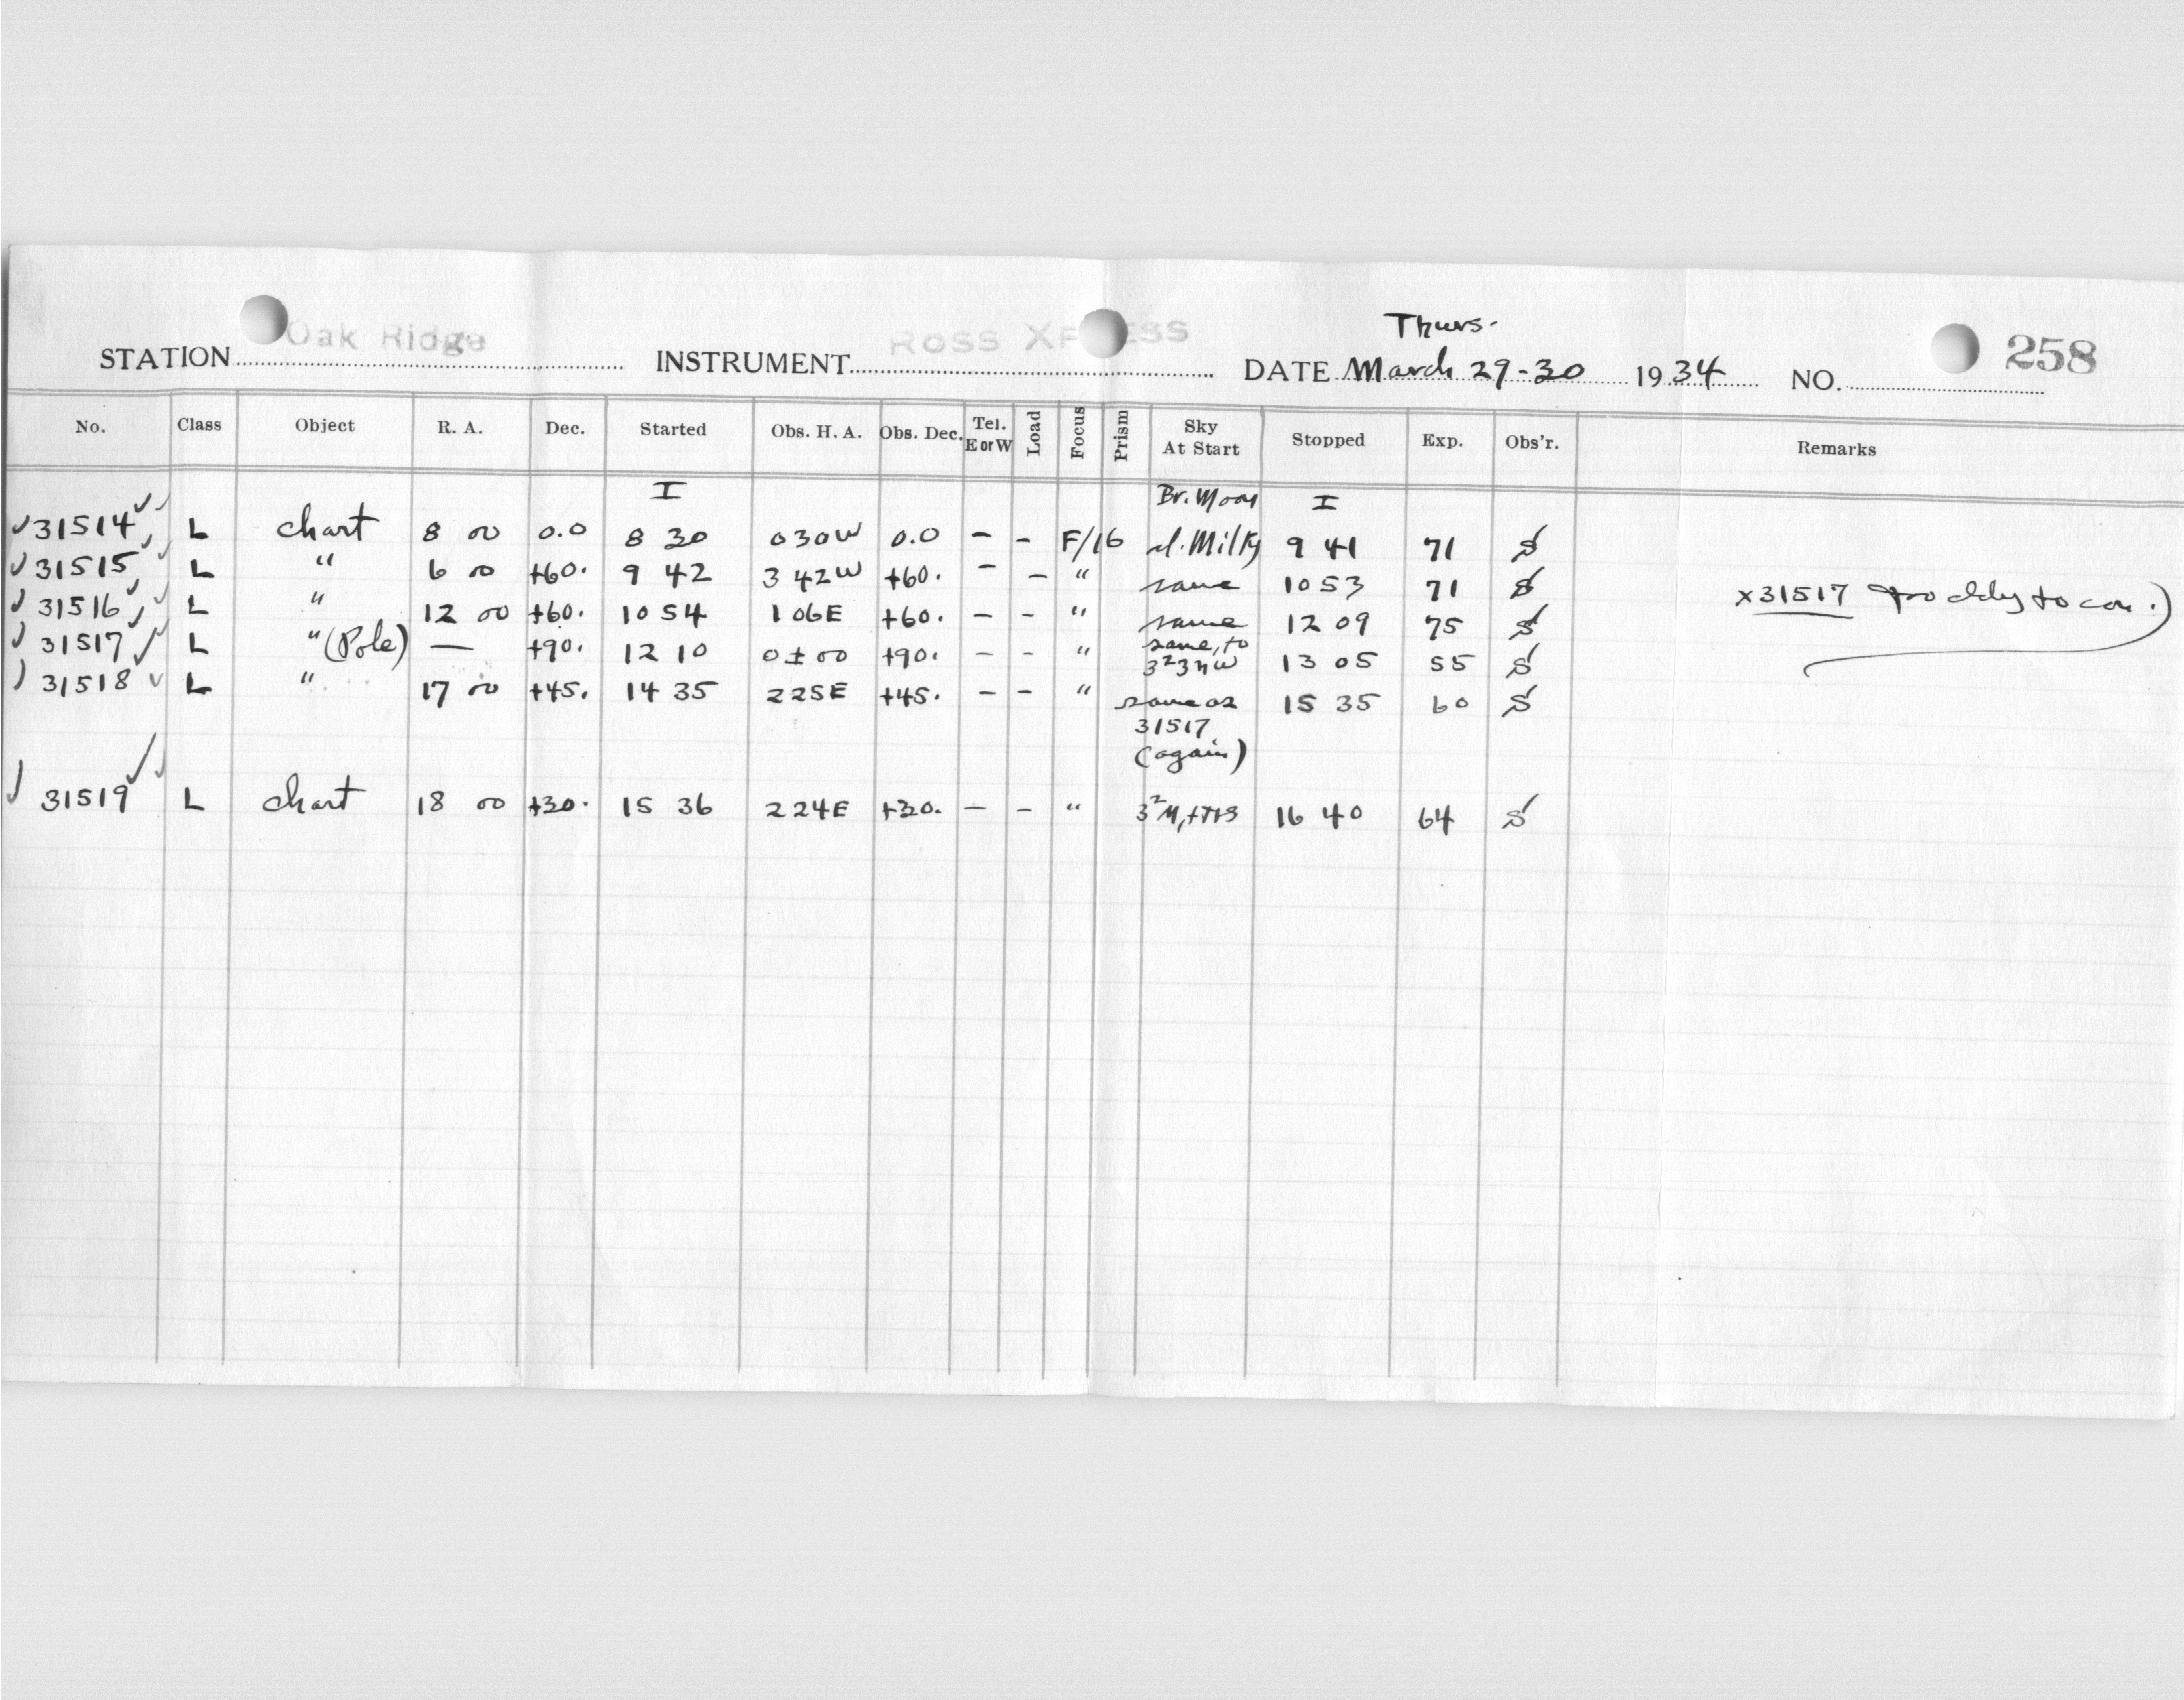 Thurs.
STATION Oak Ridge INSTRUMENT Ross XPRESS DATE March 29-30 1934 NO. 258
No. Class Object R. A. Dec. Started Obs. H. A. Obs. Dec. Tel. E or W Load Focus Prism Sky At Start Stopped Exp. Obs'r. Remarks
I Br. Moon I
31514 L chart 8 00 0.0 8 30 0 30 W 0.0 - - F/16 Milky 9 41 71 S
31515 L " 6 00 +60. 9 42 3 42 W +60. - - " same 10 53 71 S
31516 L " 12 00 +60. 10 54 1 06 E +60. - - " same 12 09 75 S x31517
31517 L " (Pole) — +90. 12 10 0 ± 00 +90. - - " same, to 13 05 55 S
31518 L " 17 00 +45. 14 35 2 25 E +45. - - " same as 15 35 60 S
31517
(again)
31519 L chart 18 00 +30. 15 36 2 24 E +30. - - " 16 40 64 S